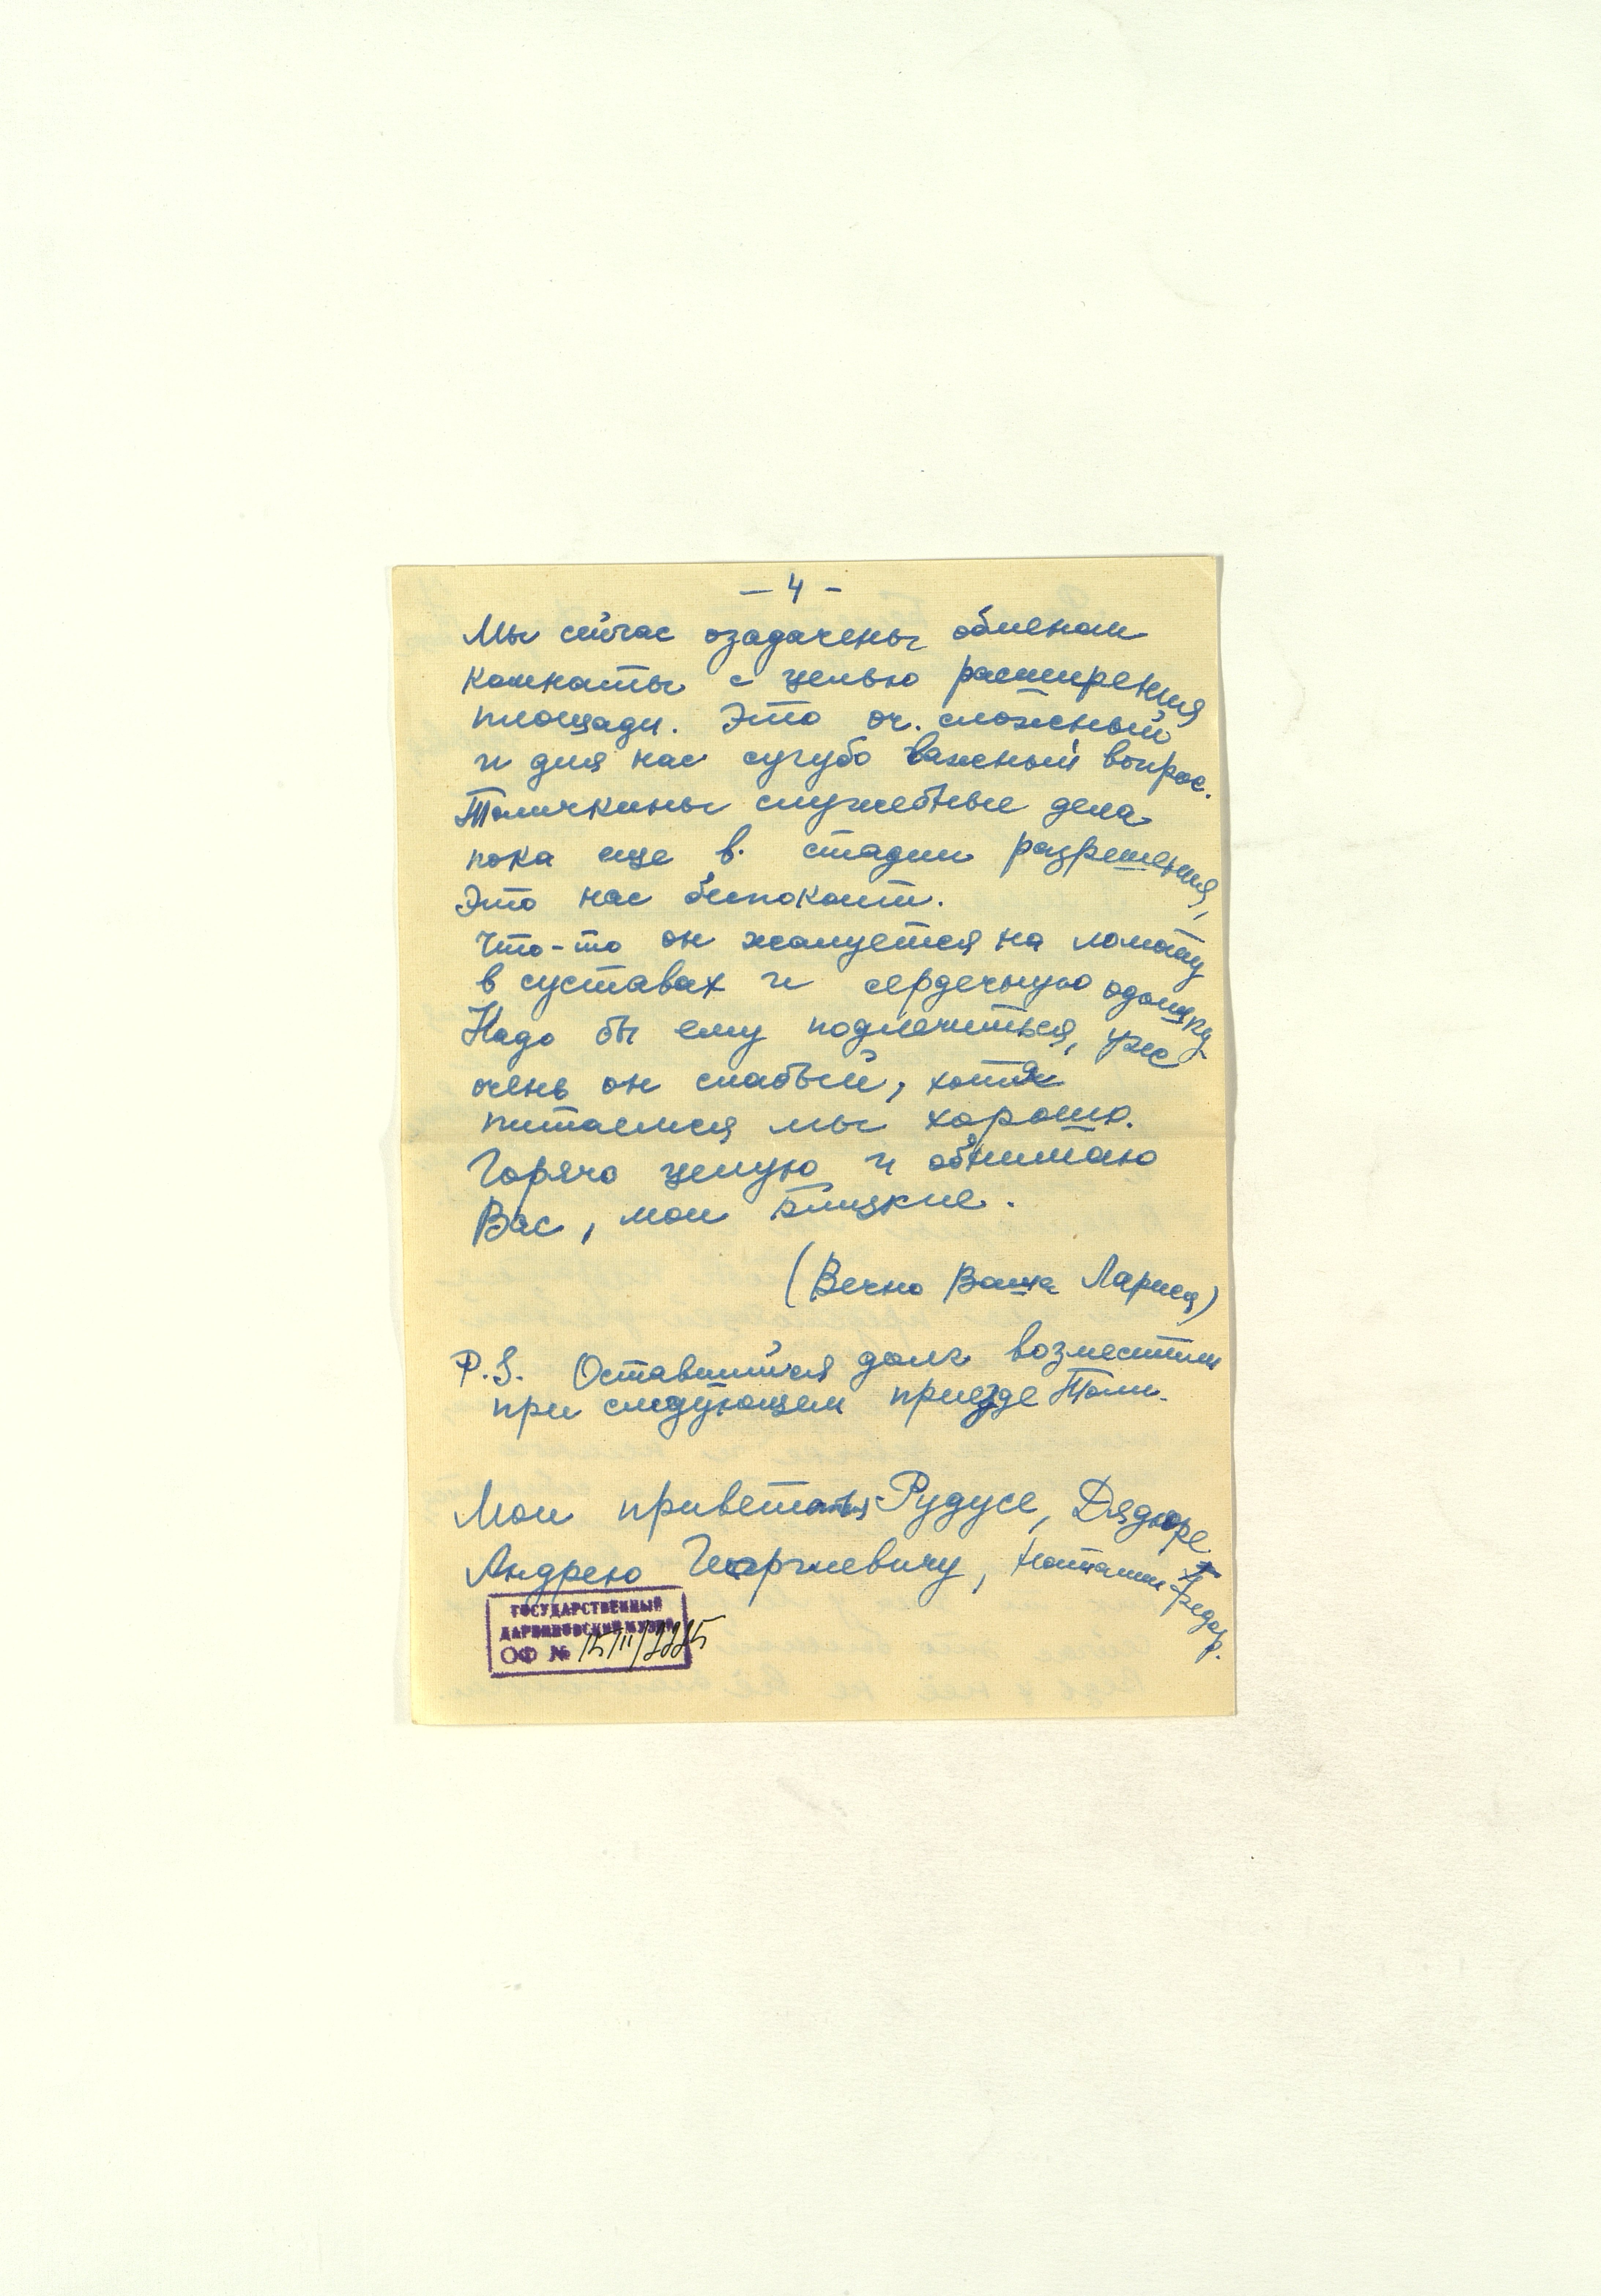 – 4 –
Мы сейчас озадачены обменом
комнаты с целью расширения
площади. Это оч. сложный
и для нас сугубо важный вопрос.
Толичкины служебные дела
пока еще в стадии разрешения,
это нас беспокоит.
Что-то он жалуется на ломоту
в суставах и сердечную одышку.
Надо бы ему подлечиться, уже
очень он слабый, хотя
питаемся мы хорошо.
Горячо целую и обнимаю
Вас, мои Близкие.
(Вечно Ваша Лариса)
P.S. Оставшийся долг возместим
при следующем приезде Толи.
Мои приветы Рудусе, Дядюре
Андрею Георгиевичу, Наташи Федор.
ГОСУДАРСТВЕННЫЙ
ДАРВИНОВСКИЙ МУЗЕЙ
ОФ №